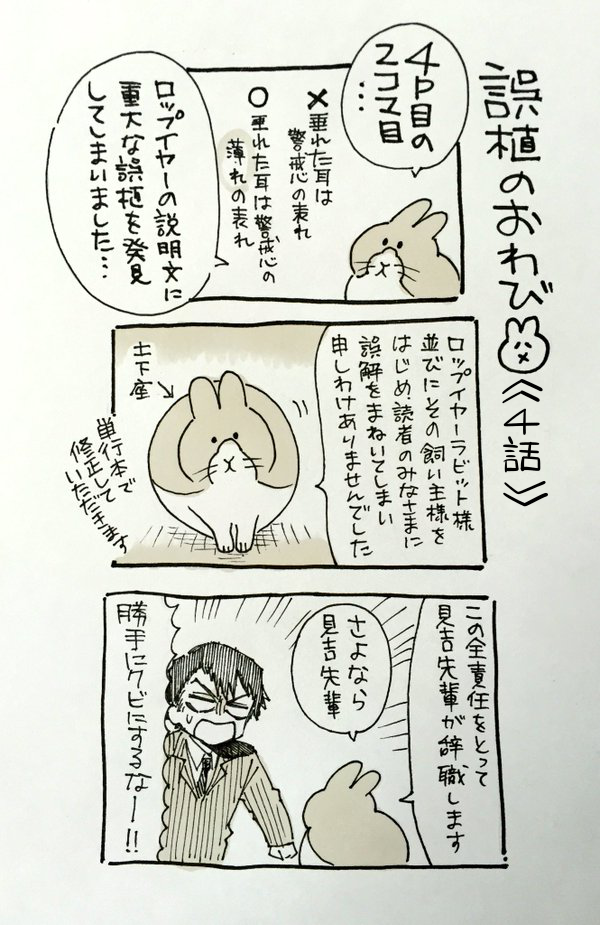 誤植のおわび
《4話》
4P目の
2コマ目
…
×垂れた耳は
警戒心の表れ
○垂れた耳は警戒心の
薄れの表れ
ロップイヤーの説明文に
重大な誤植を発見
してしまいました…
ロップイヤーラビット様
並びにその飼い主様を
はじめ、読者のみなさまに
誤解をまねいてしまい
申しわけありませんでした
土下座
単行本で
修正して
いただきます
この全責任をとって
見吉先輩が辞職します
さよなら
見吉先輩
勝手にクビにするなー!!